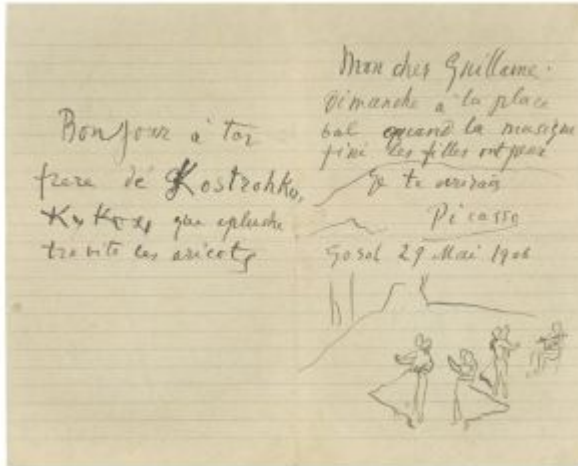 Bonjour à ton
frere de Kostrohku,
que epluche
tro vite les aricots
Mon cher Guillaume.
Dimanche à la place
bal quand la musique
fini les filles ont peur
Je te
Picasso
Gosol 29 Mai 1906